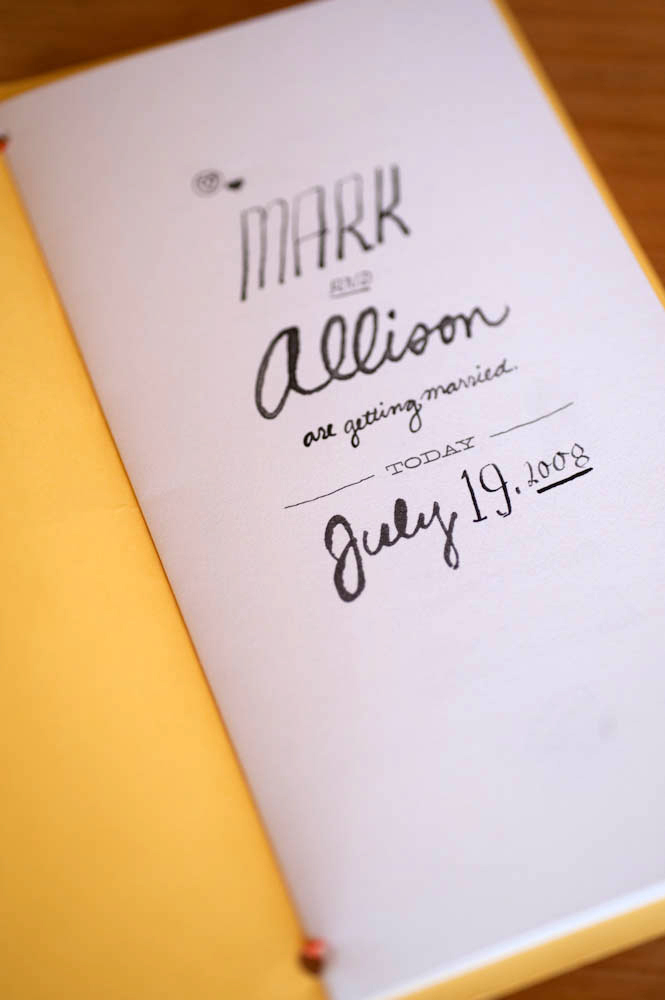 MARK
AND
Allison
are getting married.
TODAY
July 19. 2008